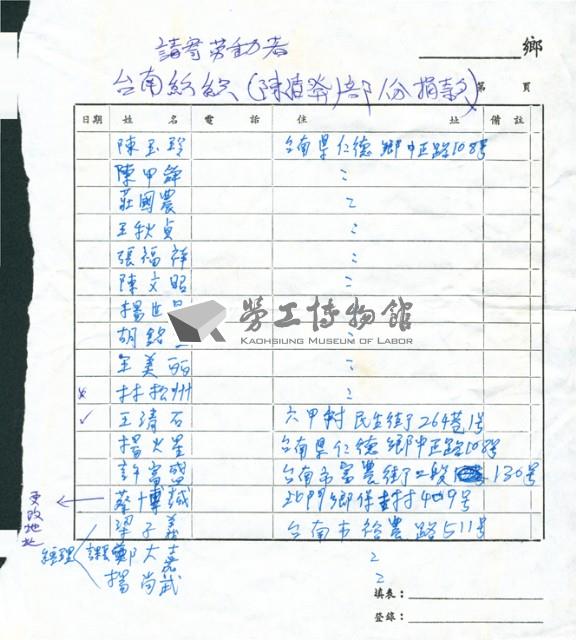 請寄勞動者
鄉
台南紡織(陳)部份捐款
第 頁
日期 姓名 電話 住址 備註
陳玉玲 台南県仁德鄉中正路108号
陳甲 〃
莊國農 〃
王秋貞 〃
張福祥 〃
陳文昭 〃
楊世
勞工博物館
KAOHSIUNG MUSEUM OF LABOR
胡銘
王美丽 〃
× 林松州 〃
✓ 王清石 六甲村民生街264巷1号
楊火星 台南県仁德鄉中正路108号
許富盛 台南市富農街二段130号
更改地址 ← 蔡博誠 北門鄉保吉村4号
梁子義 台南市裕農路511号
經理 課長 鄭大嘉 〃
楊尚武 〃
填表：
登錄：